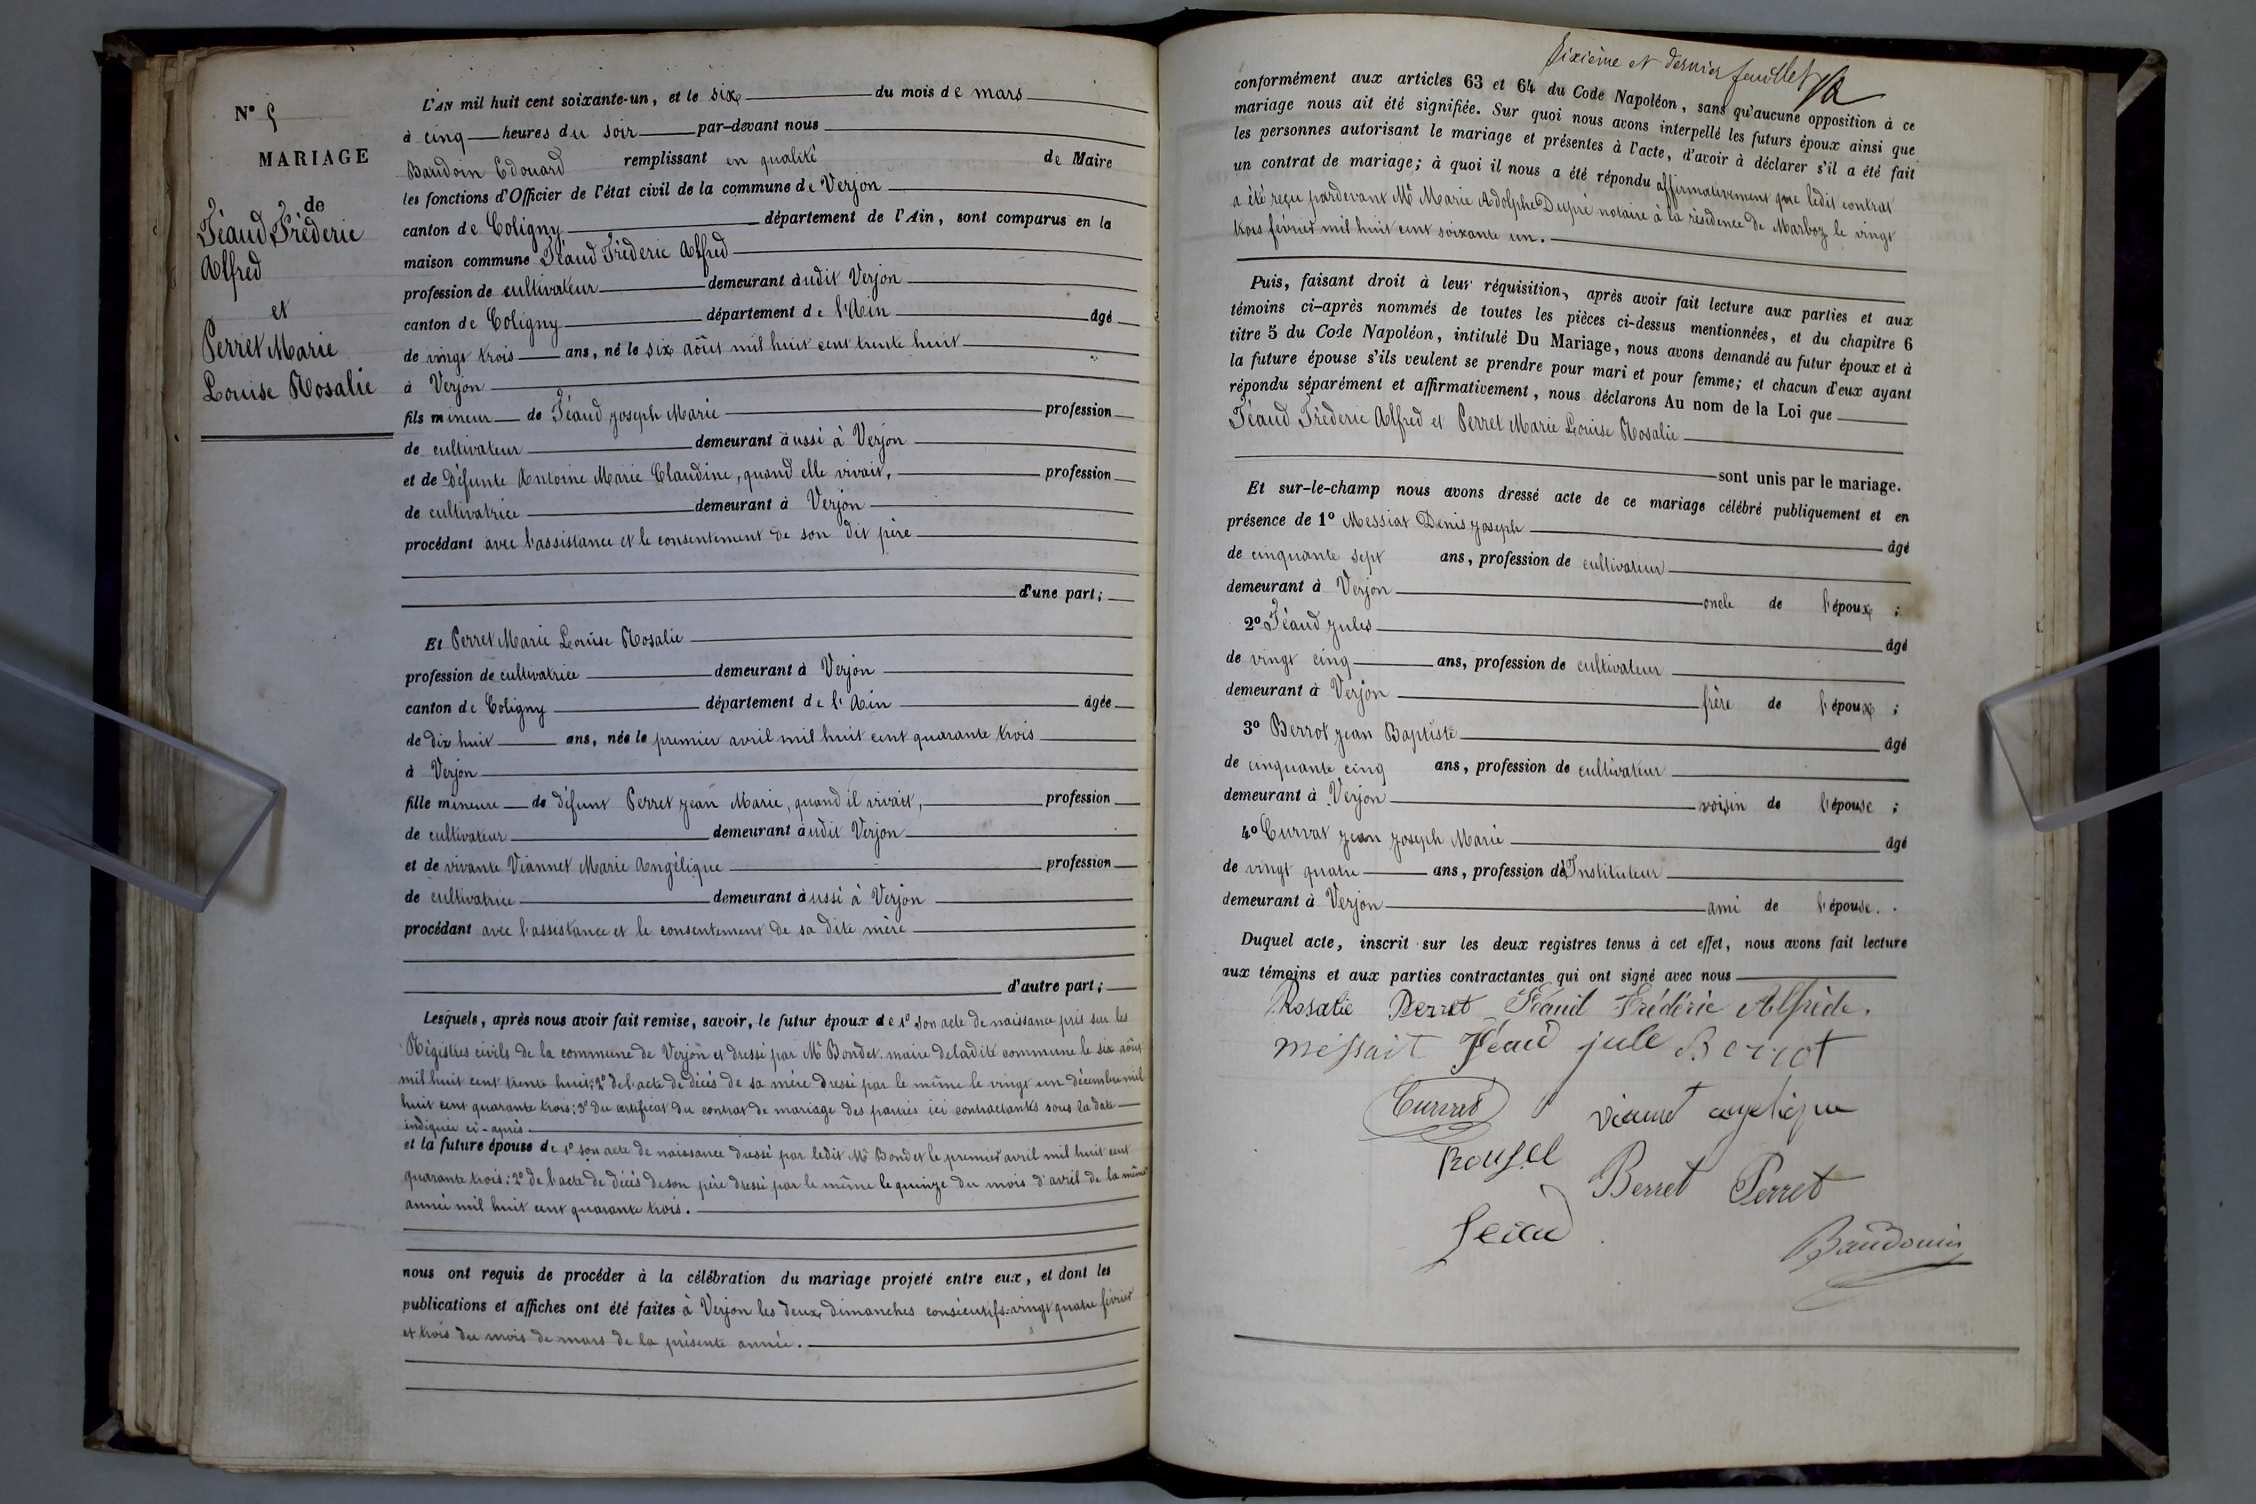 N° 5
MARIAGE
de
Féaud Fréderic
Alfred
et
Perret Marie
Louise Rosalie
L'AN mil huit cent soixante-un, et le six du mois de mars
à cinq heures du soir par-devant nous
Baudoin Edouard remplissant en qualité de Maire
les fonctions d'Officier de l'état civil de la commune de Verjon
canton de Coligny département de l'Ain, sont comparus en la
maison commune Féaud Fréderic Alfred
profession de cultivateur demeurant audit Verjon
canton de Coligny département de l'Ain âgé
de vingt trois ans, né le six août mil huit cent trente huit
à Verjon
fils mineur de Féaud Joseph Marie profession
de cultivateur demeurant aussi à Verjon
et de Défunte Antoine Marie Claudine, quand elle vivait, profession
de cultivatrice demeurant à Verjon
procédant avec l'assistance et le consentement de son dit père
d'une part;
Et Perret Marie Louise Rosalie
profession de cultivatrice demeurant à Verjon
canton de Coligny département de l'Ain âgée
de dix huit ans, née le premier avril mil huit cent quarante trois
à Verjon
fille mineure de défunt Perret Jean Marie, quand il vivait, profession
de cultivateur demeurant audit Verjon
et de vivante Viannet Marie Angélique profession
de cultivatrice demeurant aussi à Verjon
procédant avec l'assistance et le consentement de sa dite mère
d'autre part;
Lesquels, après nous avoir fait remise, savoir, le futur époux de 1° son acte de naissance pris sur les
Régistres civils de la commune de Verjon et dressé par Mr Bondet maire de ladite commune le six août
mil huit cent trente huit; 2° de l'acte de décès de sa mère dressé par le même le vingt un décembre mil
huit cent quarante trois; 3° du certificat du contrat de mariage des parties ici contractants sous la date
indiquée ci-après
et la future épouse de 1° son acte de naissance dressé par ledit Mr Bondet le premier avril mil huit cent
quarante trois; 2° de l'acte de décès de son père dressé par le même le quinze du mois d'avril de la même
année mil huit cent quarante trois.
nous ont requis de procéder à la célébration du mariage projeté entre eux, et dont les
publications et affiches ont été faites à Verjon les deux dimanches consécutifs vingt quatre février
et trois du mois de mars de la présente année.
Sixième et dernier feuillet
conformément aux articles 63 et 64 du Code Napoléon, sans qu'aucune opposition à ce
mariage nous ait été signifiée. Sur quoi nous avons interpellé les futurs époux ainsi que
les personnes autorisant le mariage et présentes à l'acte, d'avoir à déclarer s'il a été fait
un contrat de mariage; à quoi il nous a été répondu affirmativement que ledit contrat
a été reçu pardevant Mr Marie Adolphe Dupré notaire à la résidence de Marboz le vingt
trois février mil huit cent soixante un.
Puis, faisant droit à leur réquisition, après avoir fait lecture aux parties et aux
témoins ci-après nommés de toutes les pièces ci-dessus mentionnées, et du chapitre 6
titre 5 du Code Napoléon, intitulé Du Mariage, nous avons demandé au futur époux et à
la future épouse s'ils veulent se prendre pour mari et pour femme; et chacun d'eux ayant
répondu séparément et affirmativement, nous déclarons Au nom de la Loi que
Féaud Fréderic Alfred et Perret Marie Louise Rosalie
sont unis par le mariage.
Et sur-le-champ nous avons dressé acte de ce mariage célébré publiquement et en
présence de 1° Messiat Denis Joseph âgé
de cinquante sept ans, profession de cultivateur
demeurant à Verjon oncle de l'époux ;
2° Féaud Jules âgé
de vingt cinq ans, profession de cultivateur
demeurant à Verjon frère de l'époux ;
3° Berrot Jean Baptiste âgé
de cinquante cinq ans, profession de cultivateur
demeurant à Verjon voisin de l'épouse ;
4° Curvat Jean Joseph Marie âgé
de vingt quatre ans, profession d'Instituteur
demeurant à Verjon ami de l'épouse.
Duquel acte, inscrit sur les deux registres tenus à cet effet, nous avons fait lecture
aux témoins et aux parties contractantes qui ont signé avec nous
Rosalie Perret Féaud Frédéric Alfrède.
messait Féaud jule Berrot
Curvat vianet angelique
Rousel
Berret Perret
feaud
Baudouin